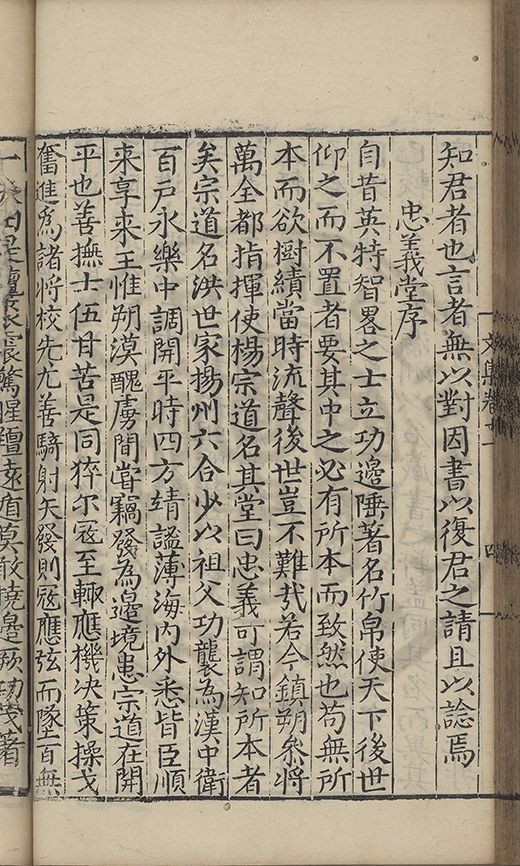 知君者也言者無以對因書以復君之請且以諗焉
忠義堂序
自昔英特智畧之士立功邊陲著名竹帛使天下後世
仰之而不置者要其中之必有所本而致然也苟無所
本而欲樹績當時流聲後世豈不難哉若今鎮朔叅將
萬全都指揮使楊宗道名其堂曰忠義可謂知所本者
矣宗道名洪世家揚州六合少以祖父功襲為漢中衛
百戶永樂中調開平時四方靖謐薄海內外悉皆臣順
来享来王惟朔漠醜虜間嘗竊發為邊境患宗道在開
平也善撫士伍甘苦是同猝尓冦至輙應機决策操戈
奮進為諸將校先尢善騎射矢發則冦應弦而墜百無
一
震驚腥羶逺遁莫敢撓邊厥功茂著
文集卷十一
四